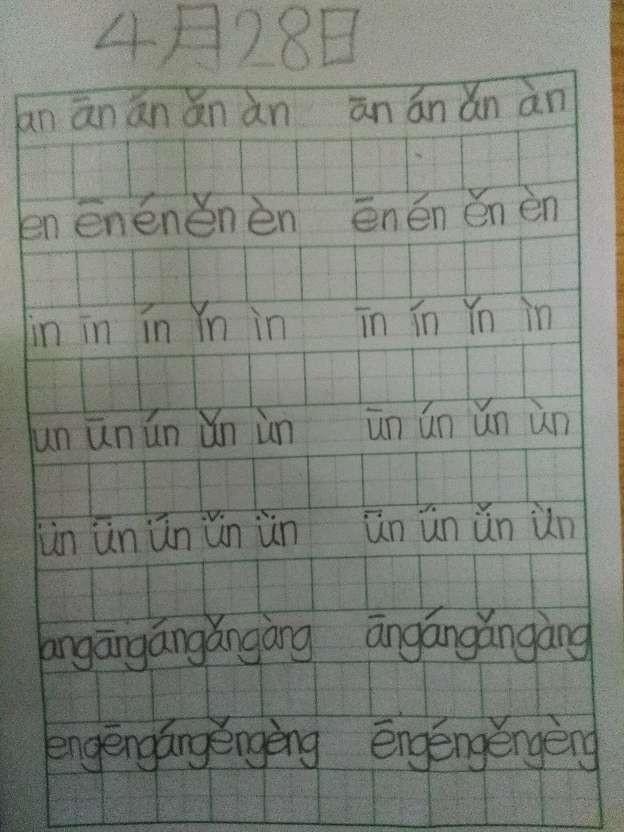 4月28日
an ān án ǎn àn ān án ǎn àn
en ēn én ěn èn ēn én ěn èn
in īn ín ǐn ìn īn ín ǐn ìn
un ūn ún ǔn ùn ūn ún ǔn ùn
ün ǖn ǘn ǚn ǜn ǖn ǘn ǚn ǜn
angāngángǎngàng āngángǎngàng
engēngángěngèng ēngéngěngèng